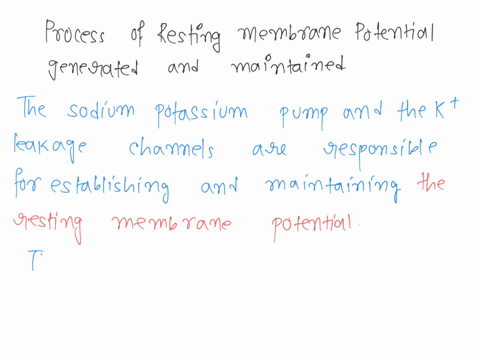 Process of Resting membrane Potential
generated and maintained
The sodium potassium pump and the K+
leakage channels are responsible
for establishing and maintaining the
resting membrane potential.
T